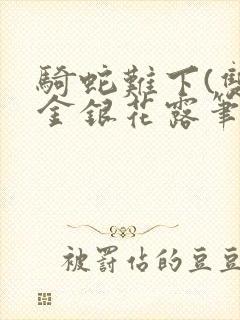 騎蛇難下(雙
金銀花露筆
被罰佔的豆豆